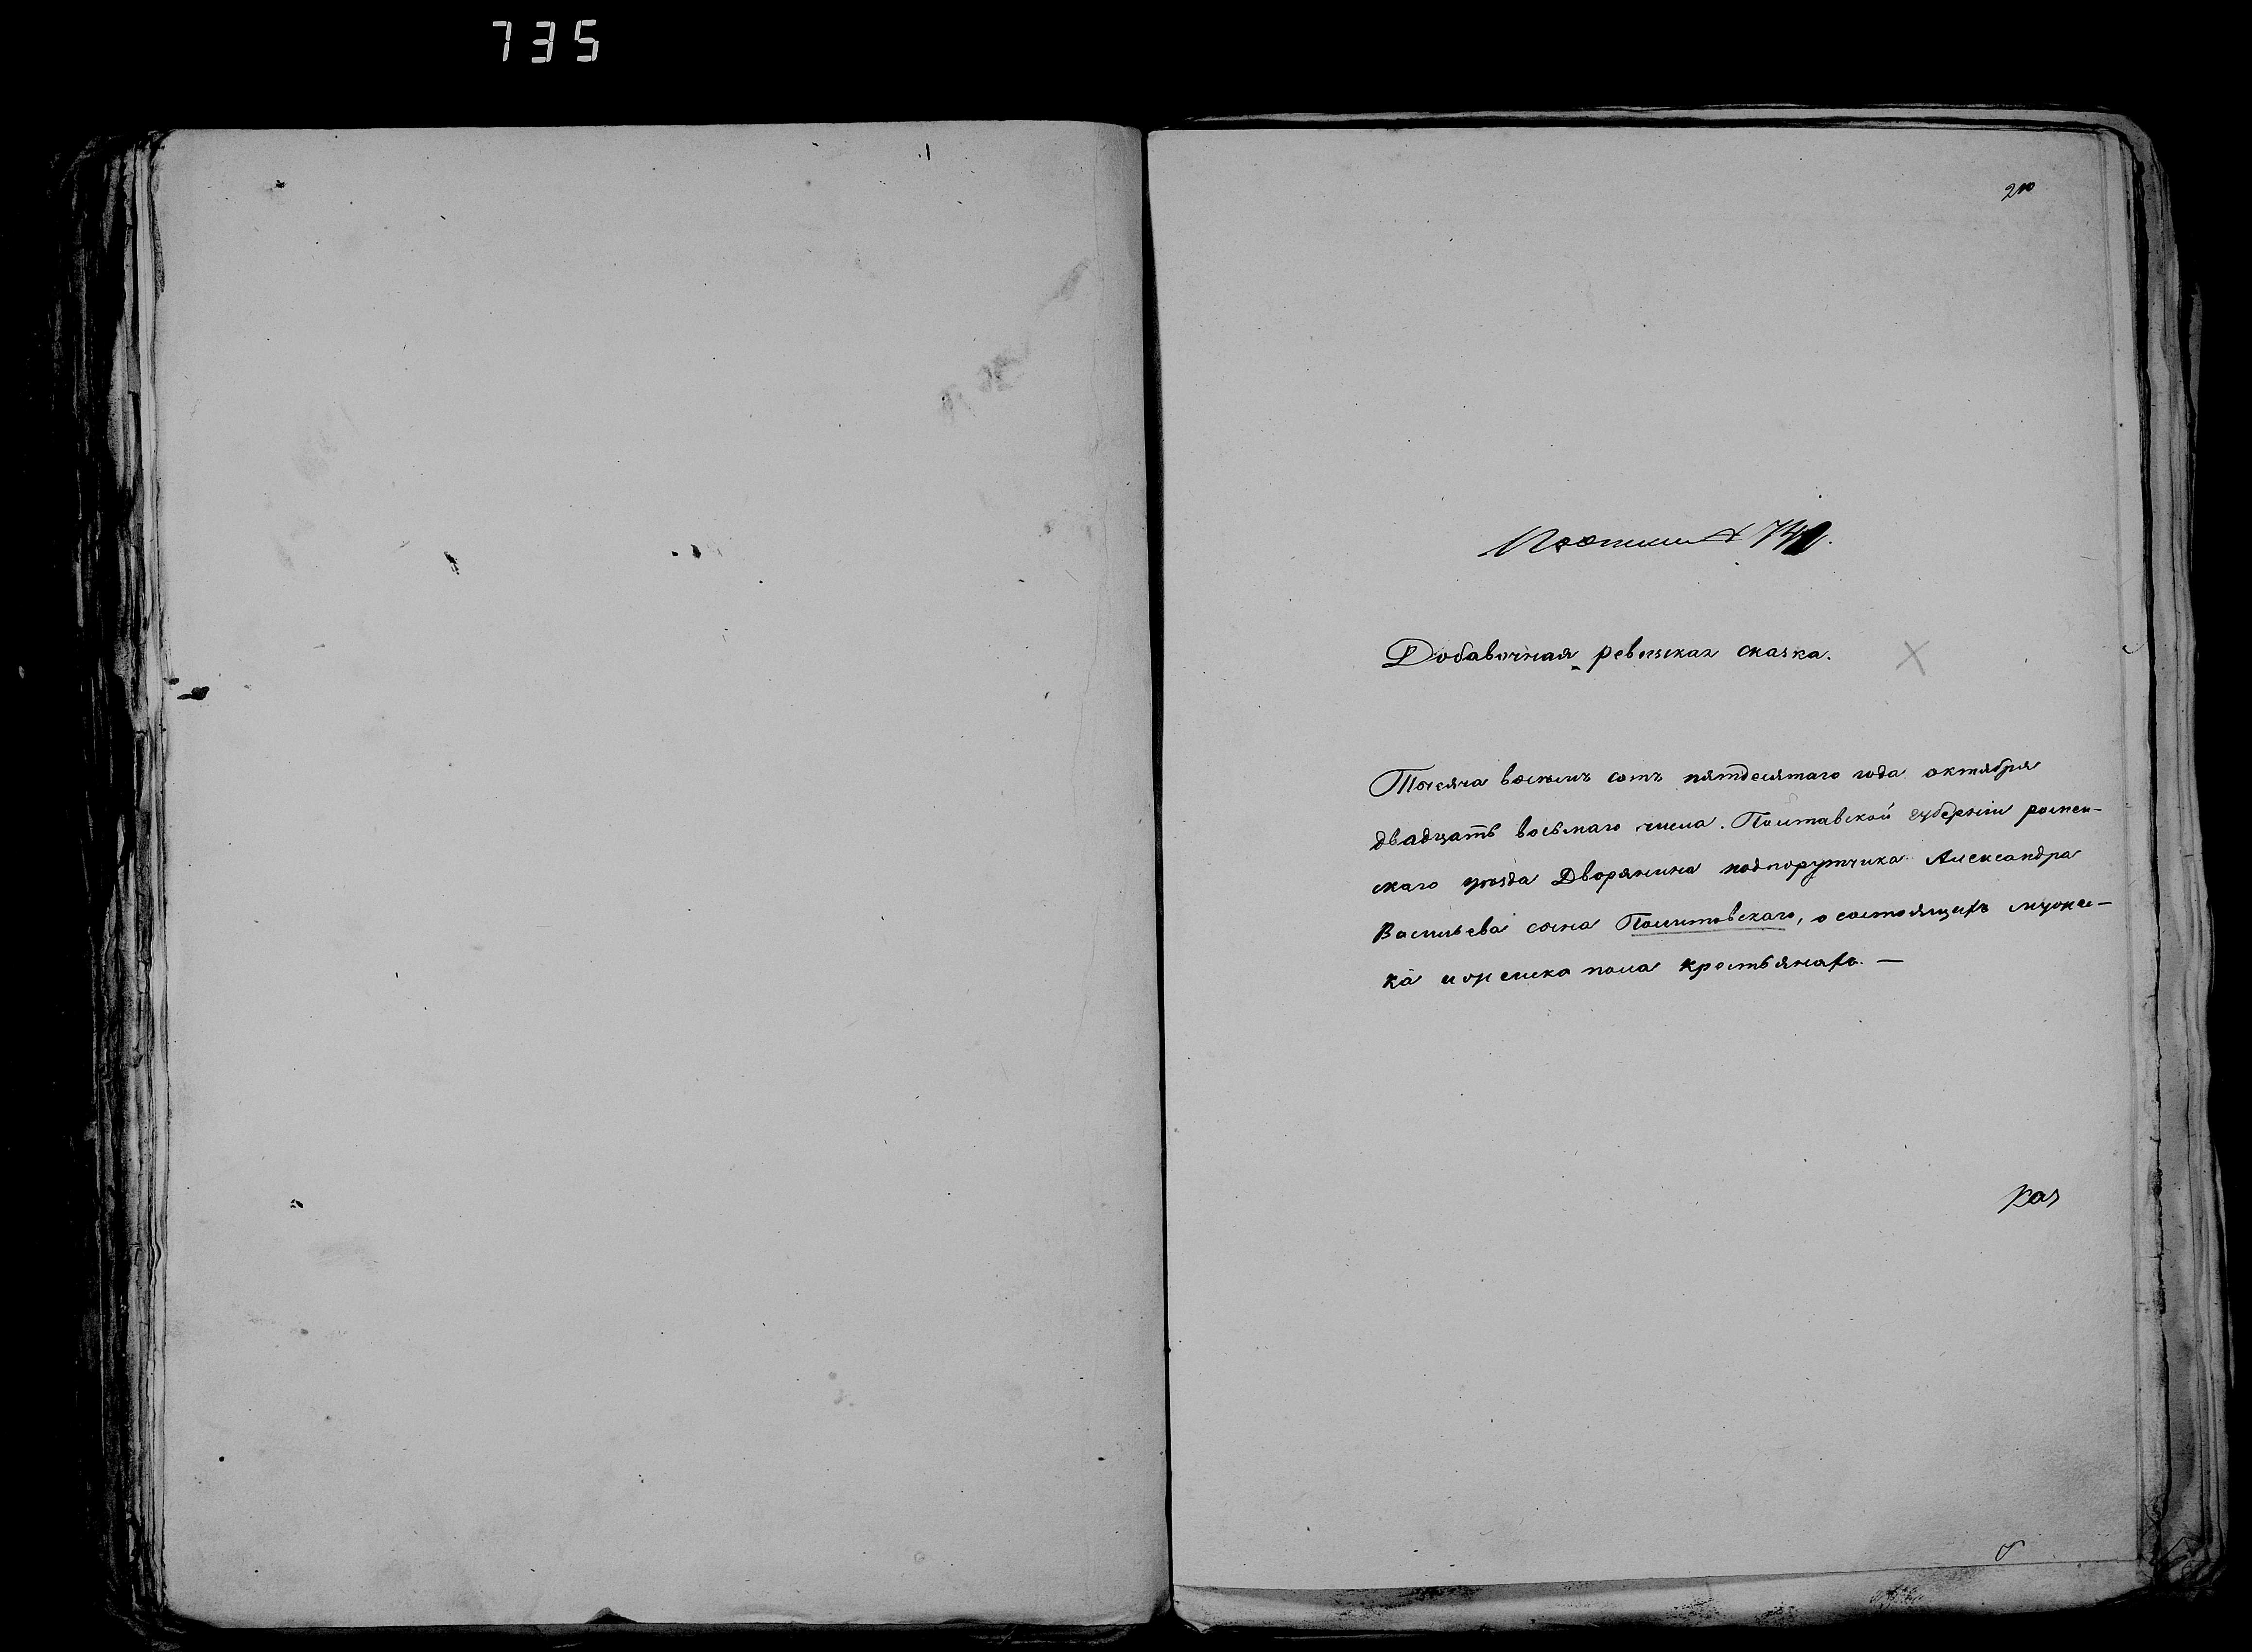 735
Добавочная ревизская сказка.
Тысяча восемь сотъ пятдесятаго года октября
двадцать восьмаго числа. Полтавской губерніи ромен-
скаго уезда Дворянина подпорутчика Александра
Васильева сына Полетовскаго, о состоящихъ мужес-
ка и женска пола крестьянахъ. —